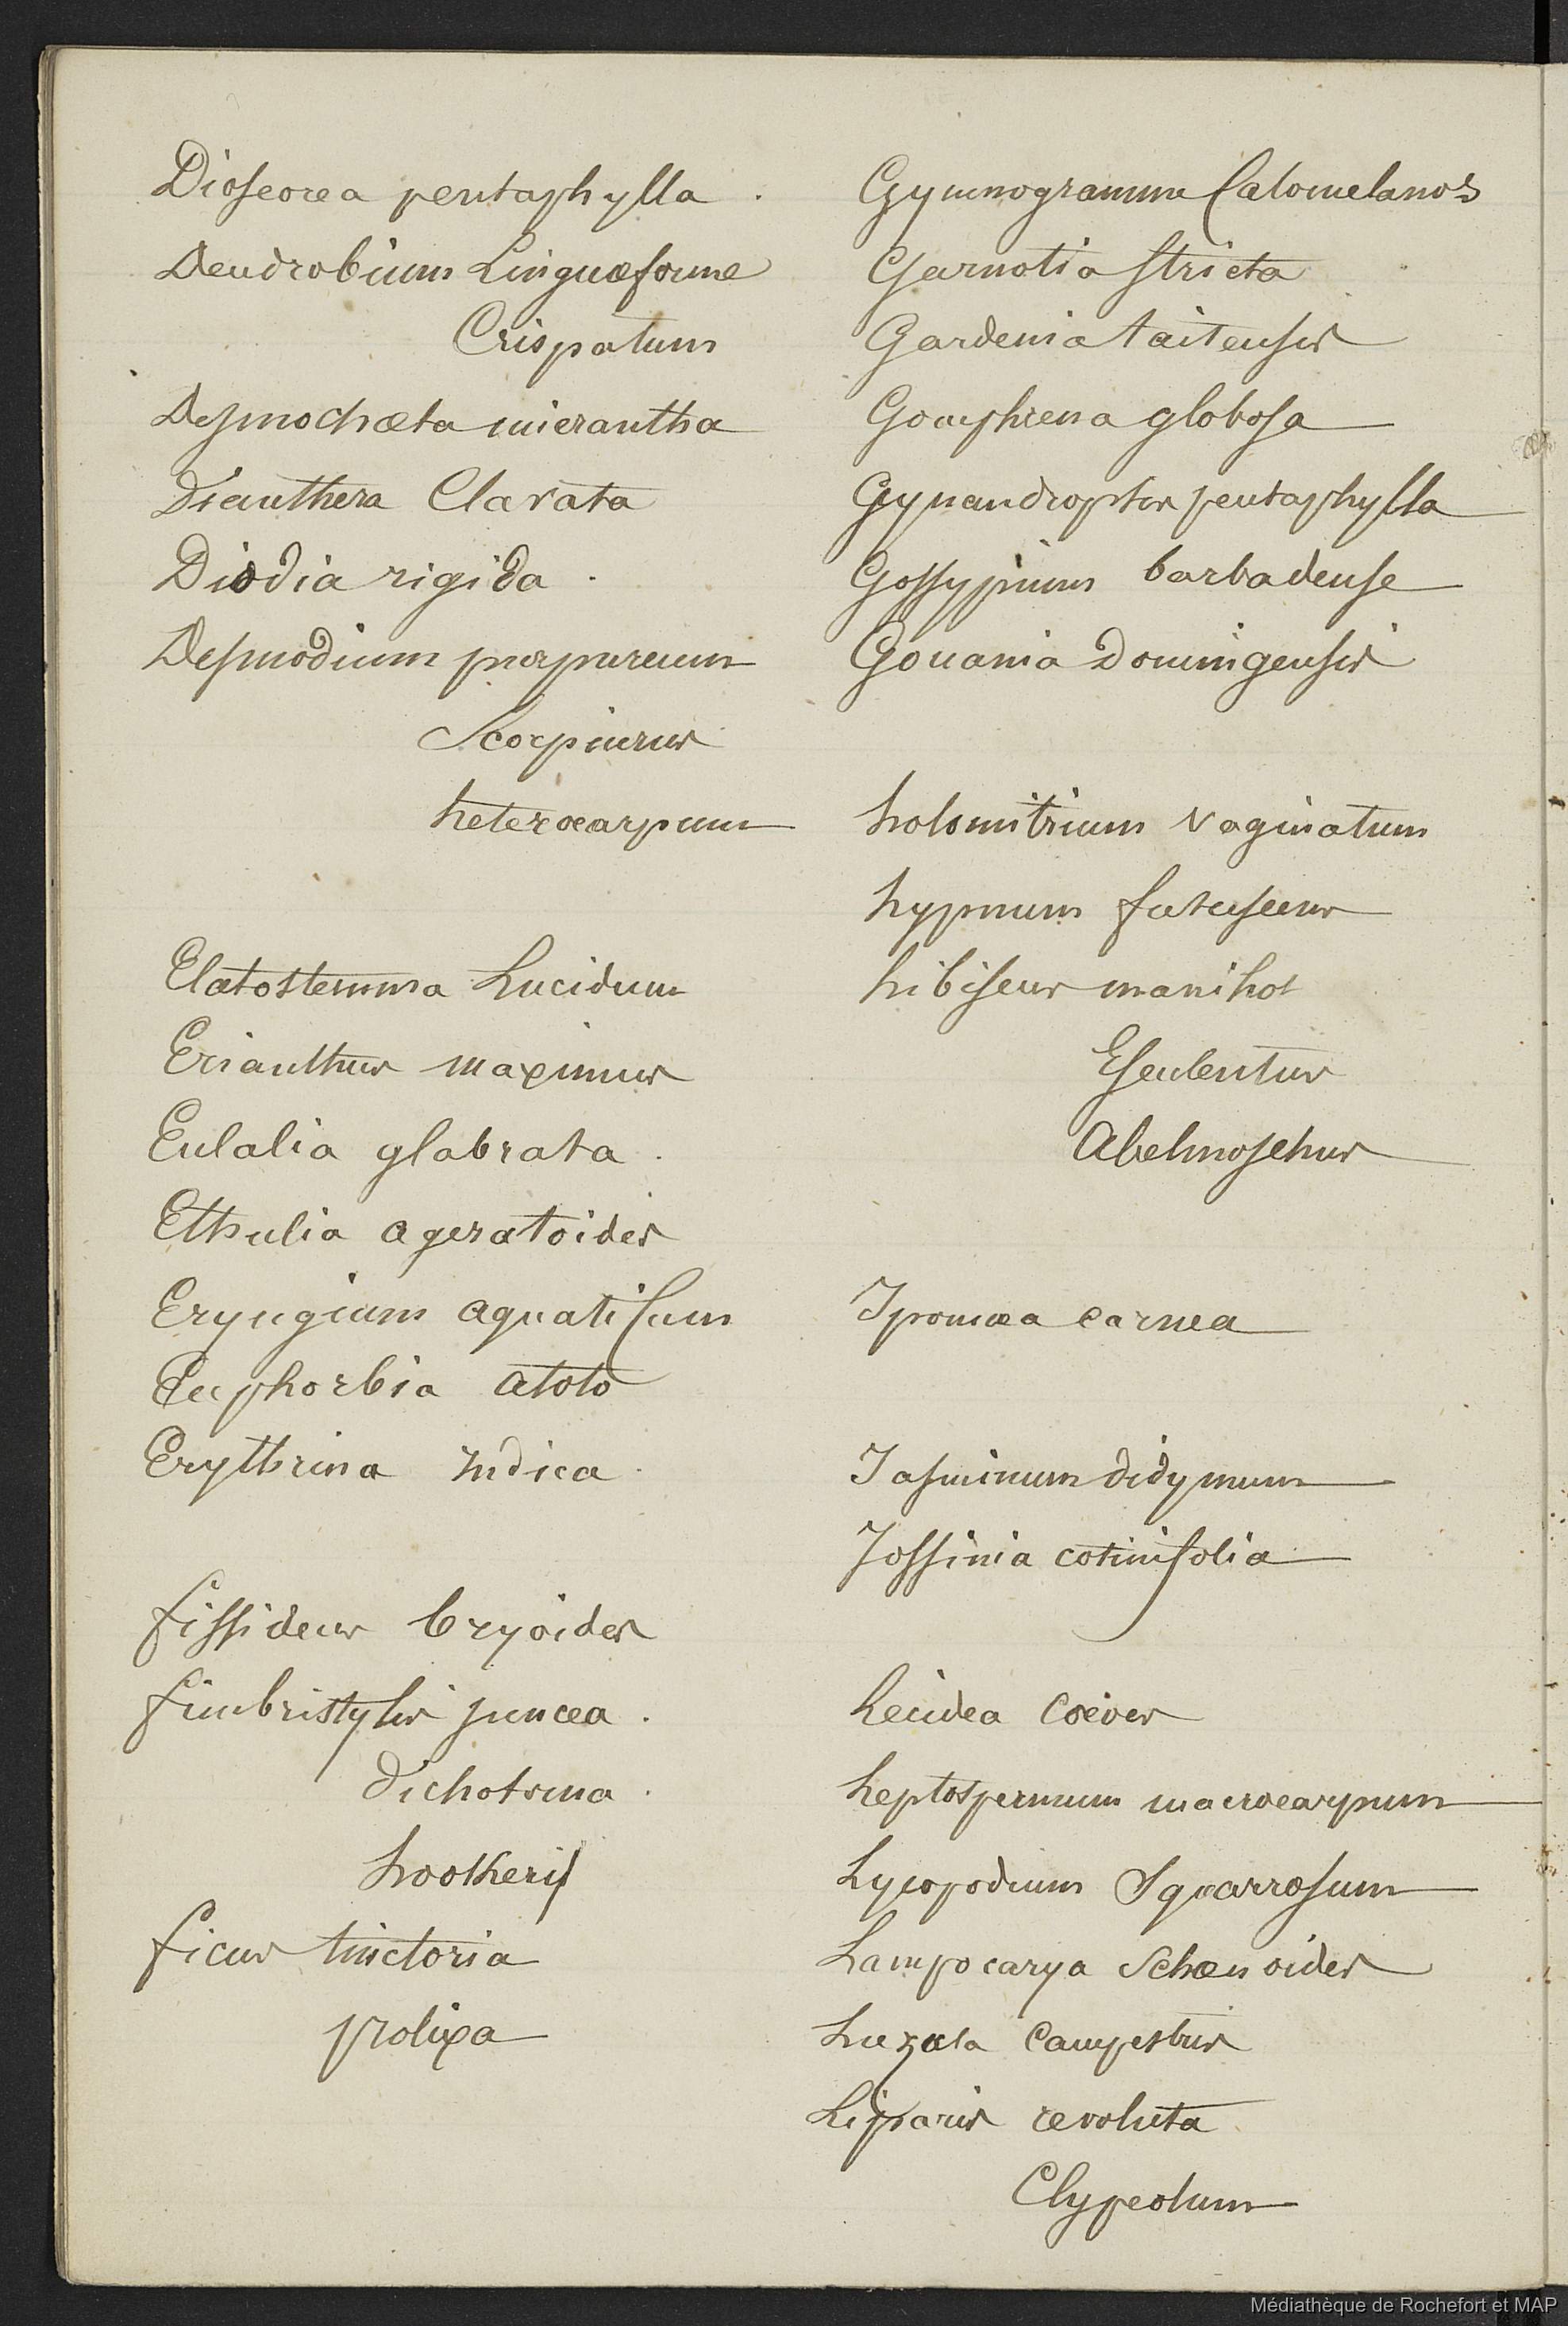 Dioscorea pentaphylla .
Dendrobium Linguæforme
Crispatum
Desmochæta micrantha
Dianthera Clavata
Diodia rigida .
Desmodium purpureum
Scorpiurus
heterocarpum
Elatostemma Lucidum
Erianthus maximus
Eulalia glabrata .
Ethulia ageratoides
Eryngium aquaticum
Euphorbia atoto
Erythrina Indica .
fissidens bryoides
fimbristylis juncea .
dichotoma .
hookeri
ficus tinctoria
prolixa
Gymnogramma Calomelanos
Garnotia stricta
Gardenia taitensis
Gomphrena globosa
Gynandropsis pentaphylla
Gossypium barbadense
Gouania Domingensis
holomitrium vaginatum
hypnum
hibiscus manihot
Esculentus
Abelmoschus
Ipomœa carnea
Jasminum didymum
Jossinia cotinifolia
Lecidea
Leptospermum macrocarpum
Lycopodium Squarrosum
Lampocarya Schœnoides
Luzula Campestris
Liparis revoluta
Clypeolum
Médiathèque de Rochefort et MAP